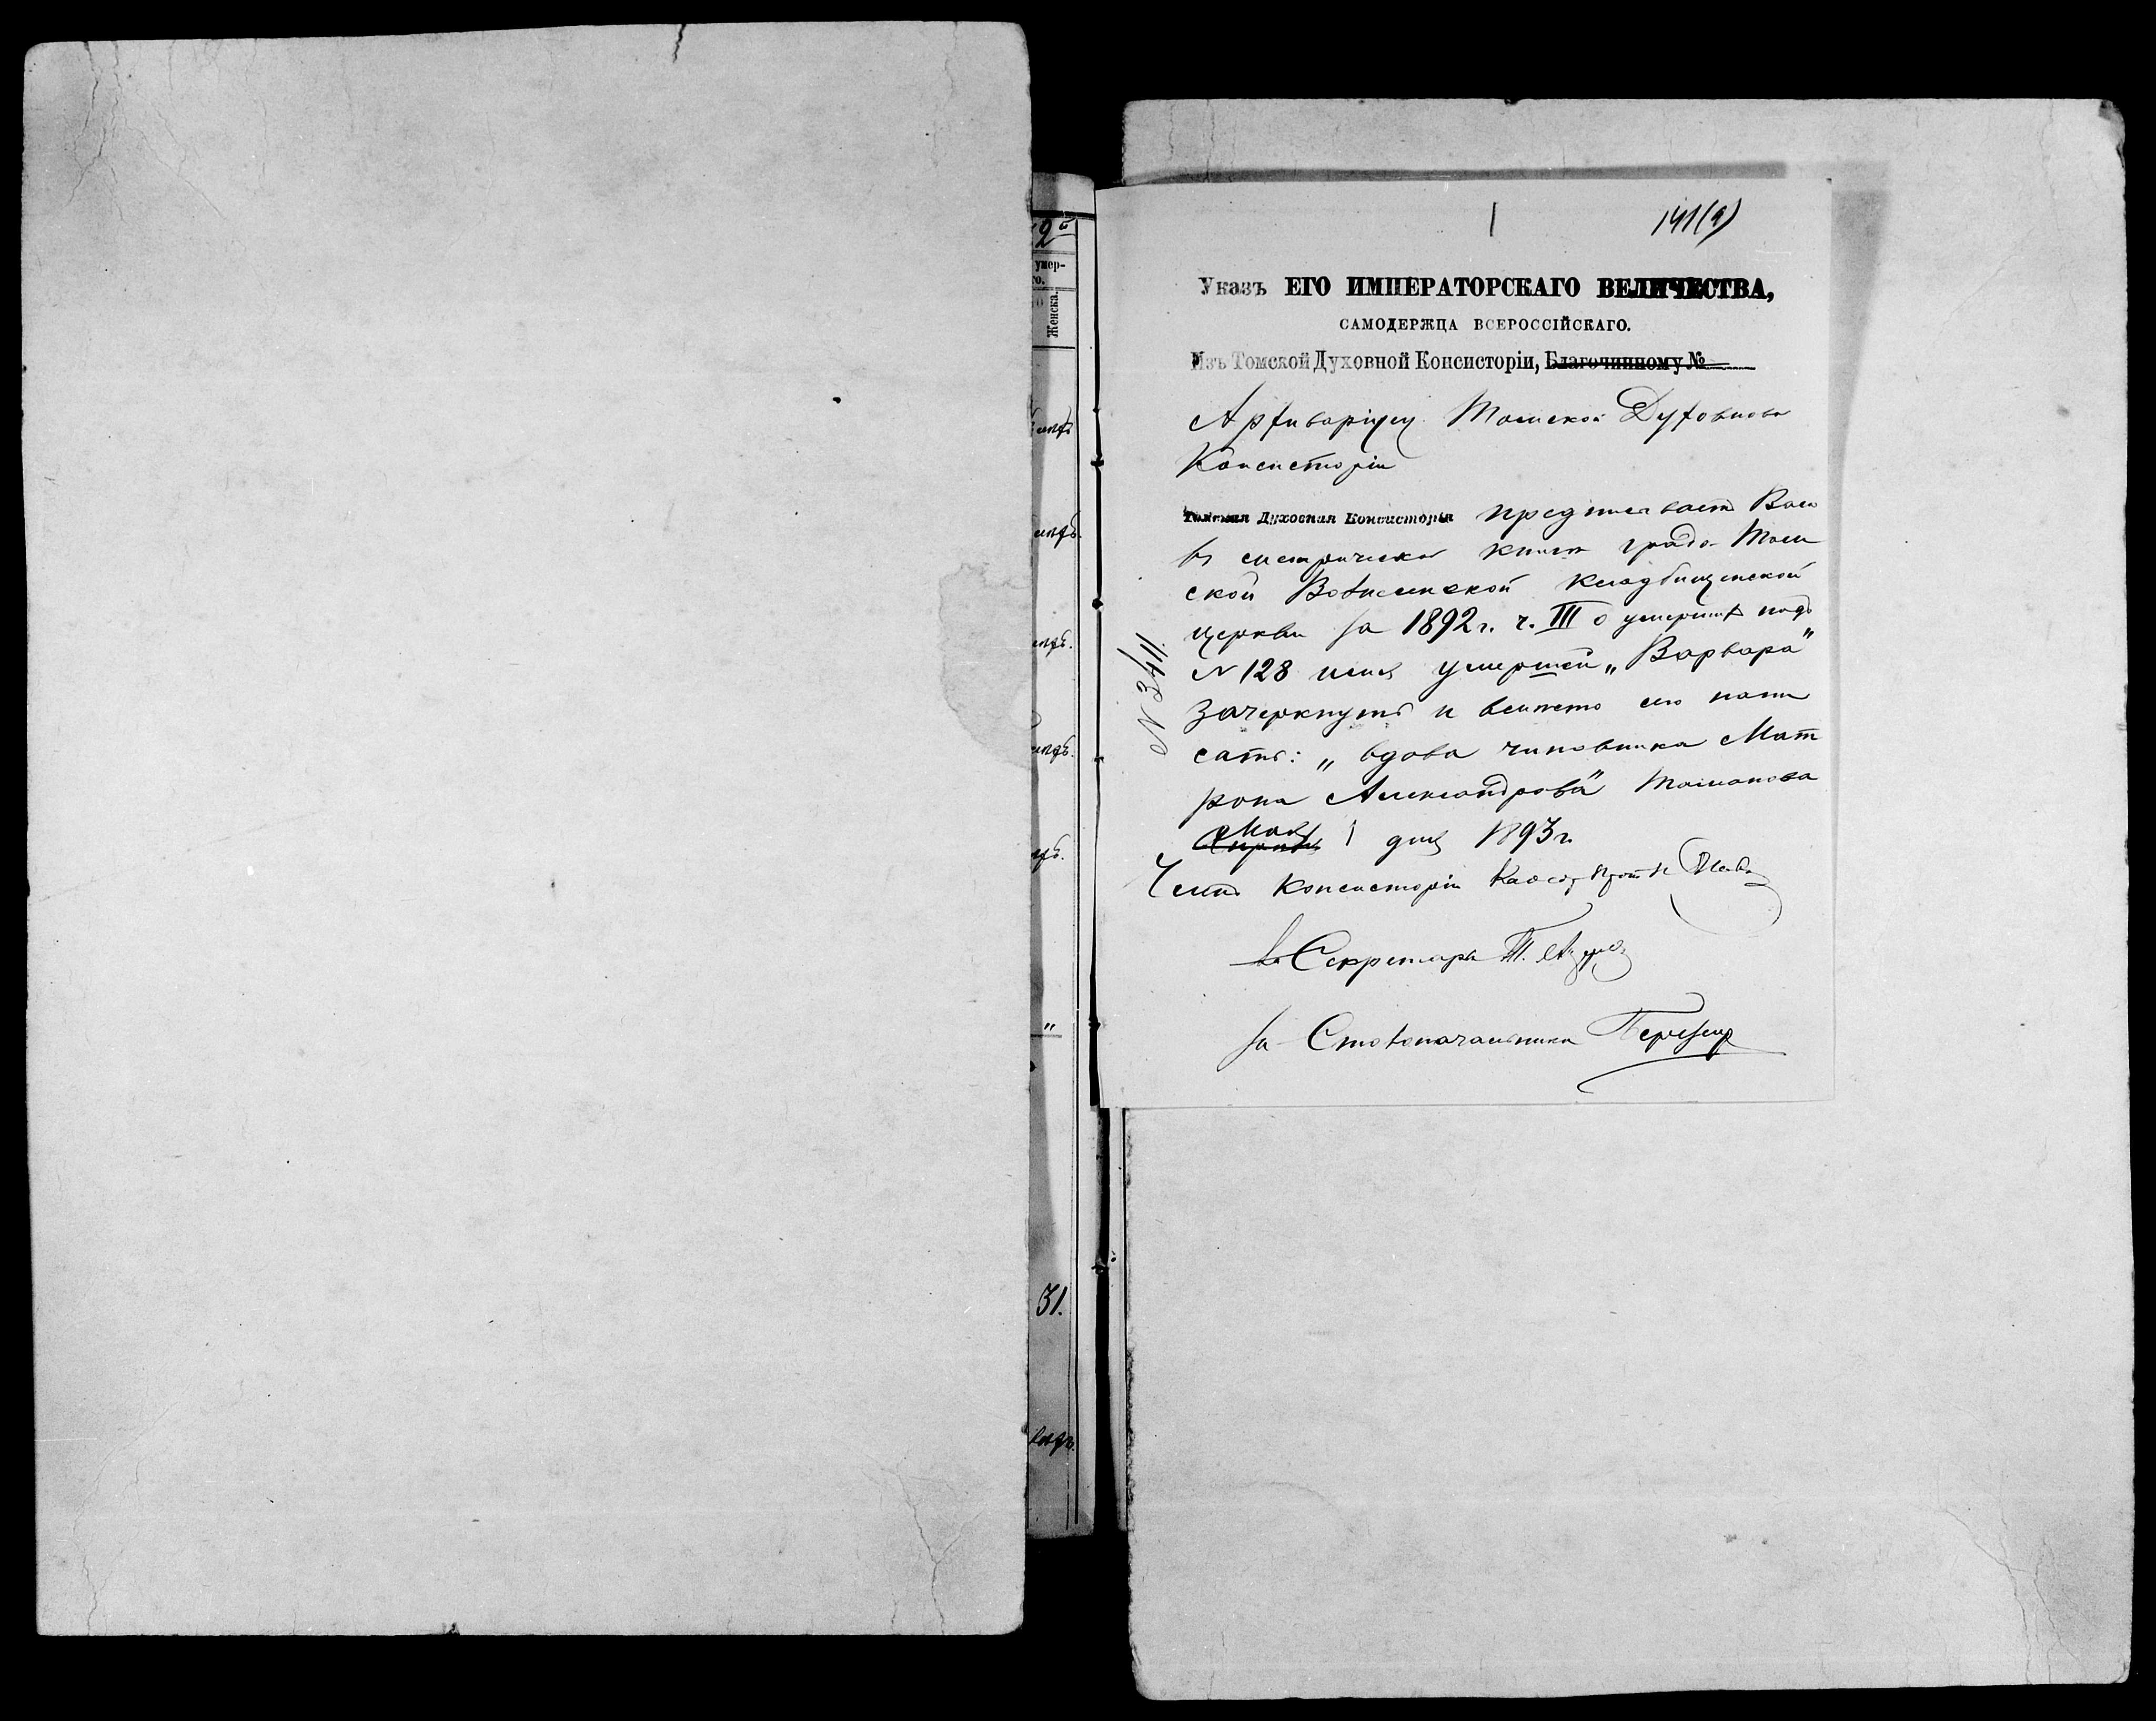 2й
умер-
го.
Женска.
31.
141(а)
Указъ ЕГО ИМПЕРАТОРСКАГО ВЕЛИЧЕСТВА,
САМОДЕРЖЦА ВСЕРОССІЙСКАГО.
Изъ Томской Духовной Консисторіи, Благочинному №
Архиваріусу Томской Духовной
Консисторіи
Томская Духовная Консисторія предписываетъ Вамъ
въ метрической книгѣ градо-Том
ской Вознесенской кладбищенской
церкви за 1892 г. ч. III о умершихъ подъ
№ 128 имя умершей „Варвара"
зачеркнуть и вмѣсто его напи
сать: „вдова чиновника Мат
рона Александрова" Томанова
№ 3411.
Мая 1 дня 1893 г.
Членъ Консисторіи
Секретарь
За Столоначальника